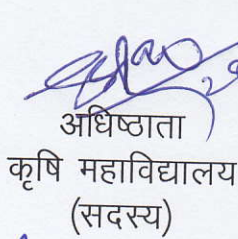 अधिष्ठाता
कृषि महाविद्यालय
(सदस्य)